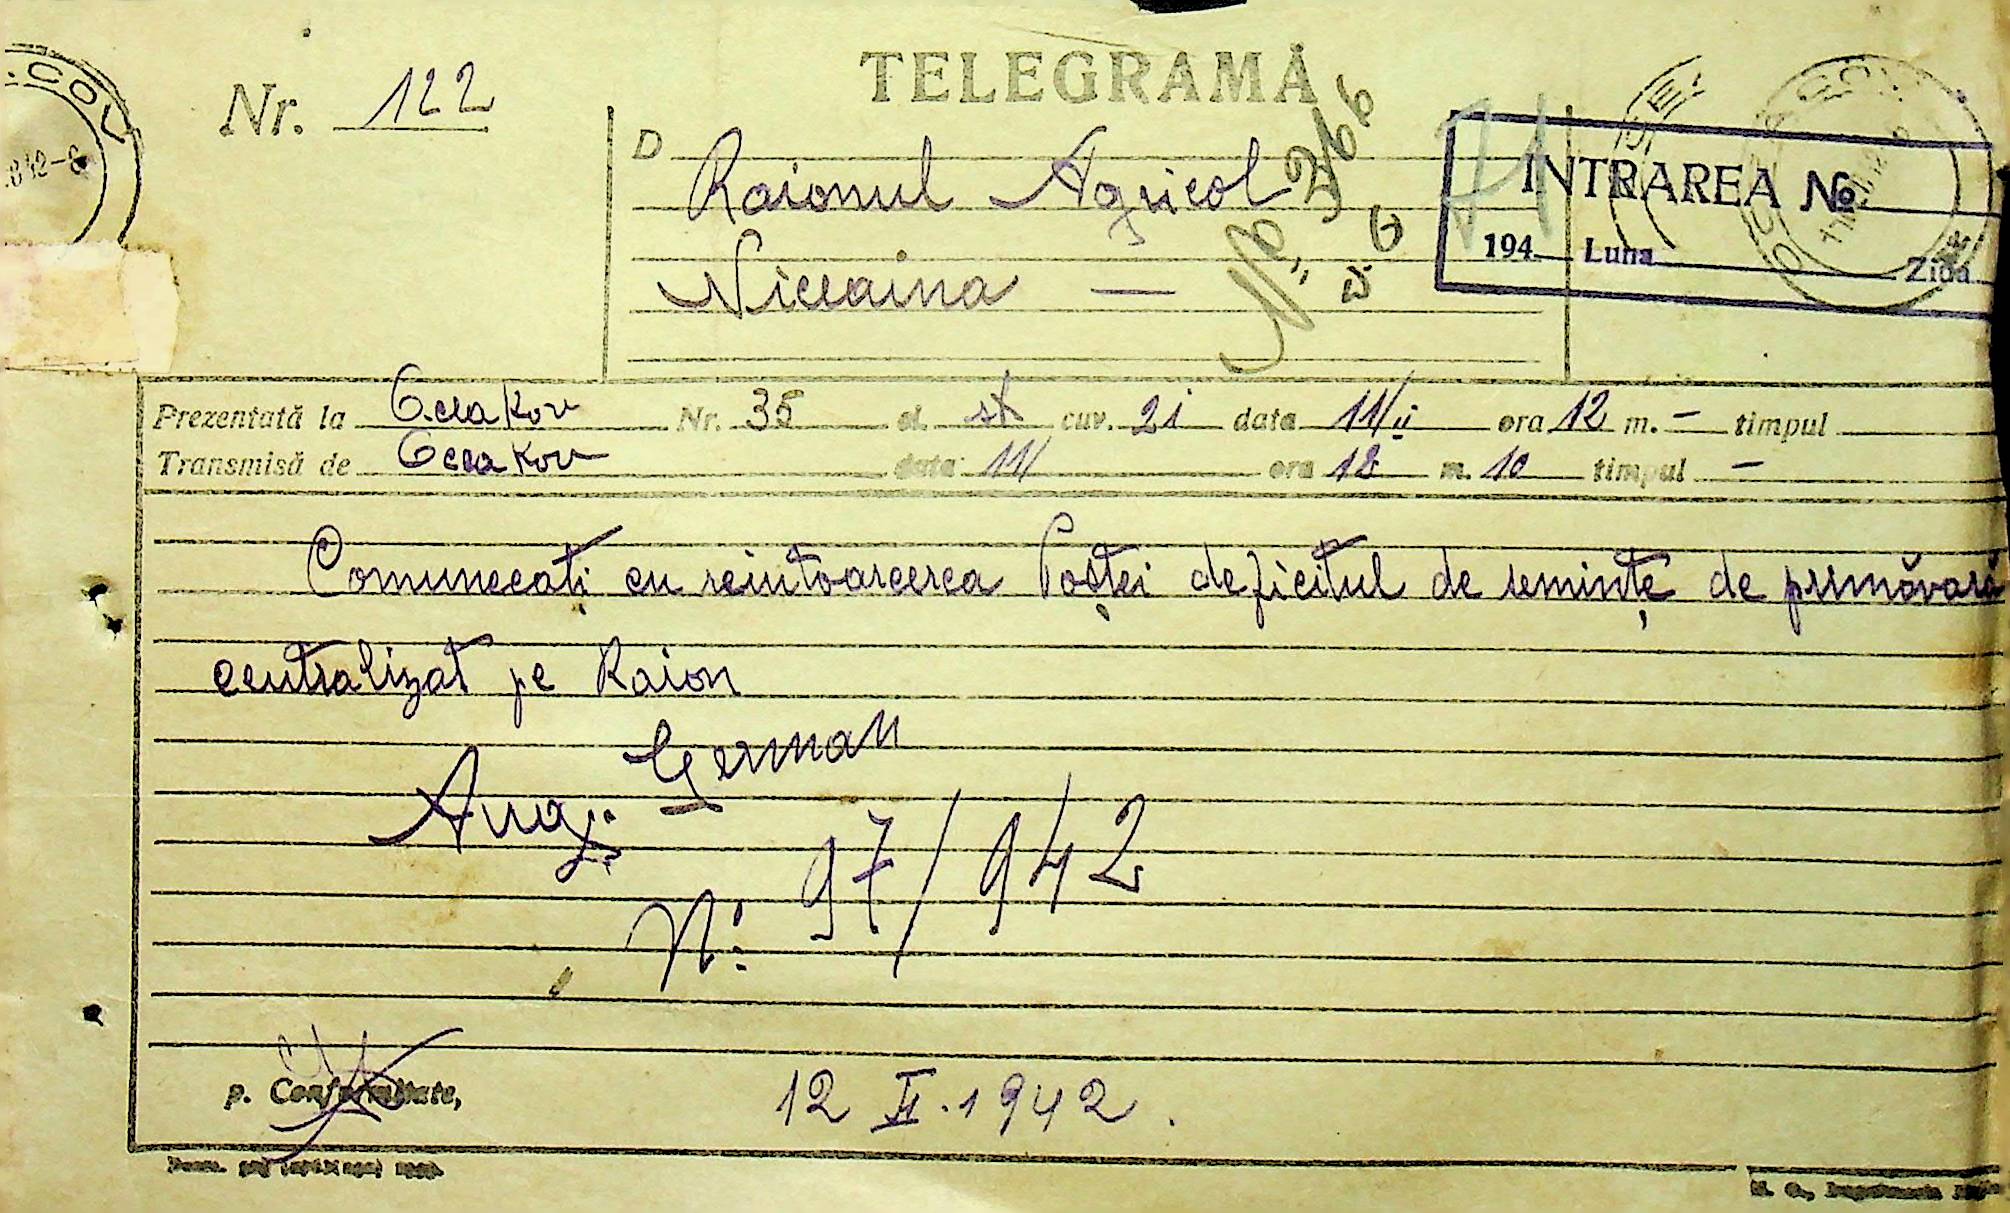 TELEGRAMĂ
Nr. 122
D Raionul Agricol
Nicclaina —
No, 266
INTRAREA No
194 Luna Ziua
Prezentată la Oceakov Nr. 35 cl. st cuv. 21 data 11/II ora 12 m. - timpul
Transmisă de Oceakov data 11/ ora 12 m. 10 timpul -
Comunecați cu reintoarcerea Poștei deficitul de seminte de primăvară
centralizat pe Raion
Ang: German
No: 97/942
p. Conformitate,
12 II. 1942.